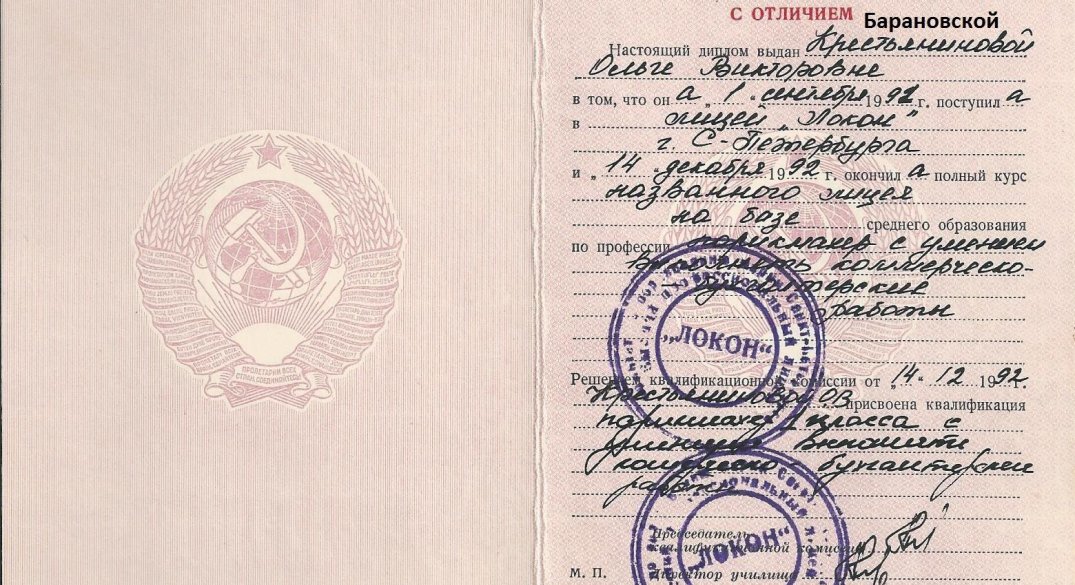 С ОТЛИЧИЕМ
Барановской
Настоящий диплом выдан Крестьяниновой
Ольге Викторовне
в том, что он а „ 1 “ сентября 1991 г. поступил а
в лицей „Локон“
г. С-Петербурга
и „ 14 “ декабря 1992 г. окончил а полный курс
названного лицея
на базе среднего образования
по профессии парикмахер с умением
выполнять коммерческо-
бухгалтерские
работы
„ЛОКОН“
Решением квалификационной комиссии от „ 14 “ 12 1992.
Крестьяниновой О.В. присвоена квалификация
парикмахер 1 класса с
умением выполнять
бухгалтерские
работы
Председатель
квалификационной комиссии
„ЛОКОН“
М. П. Директор училища